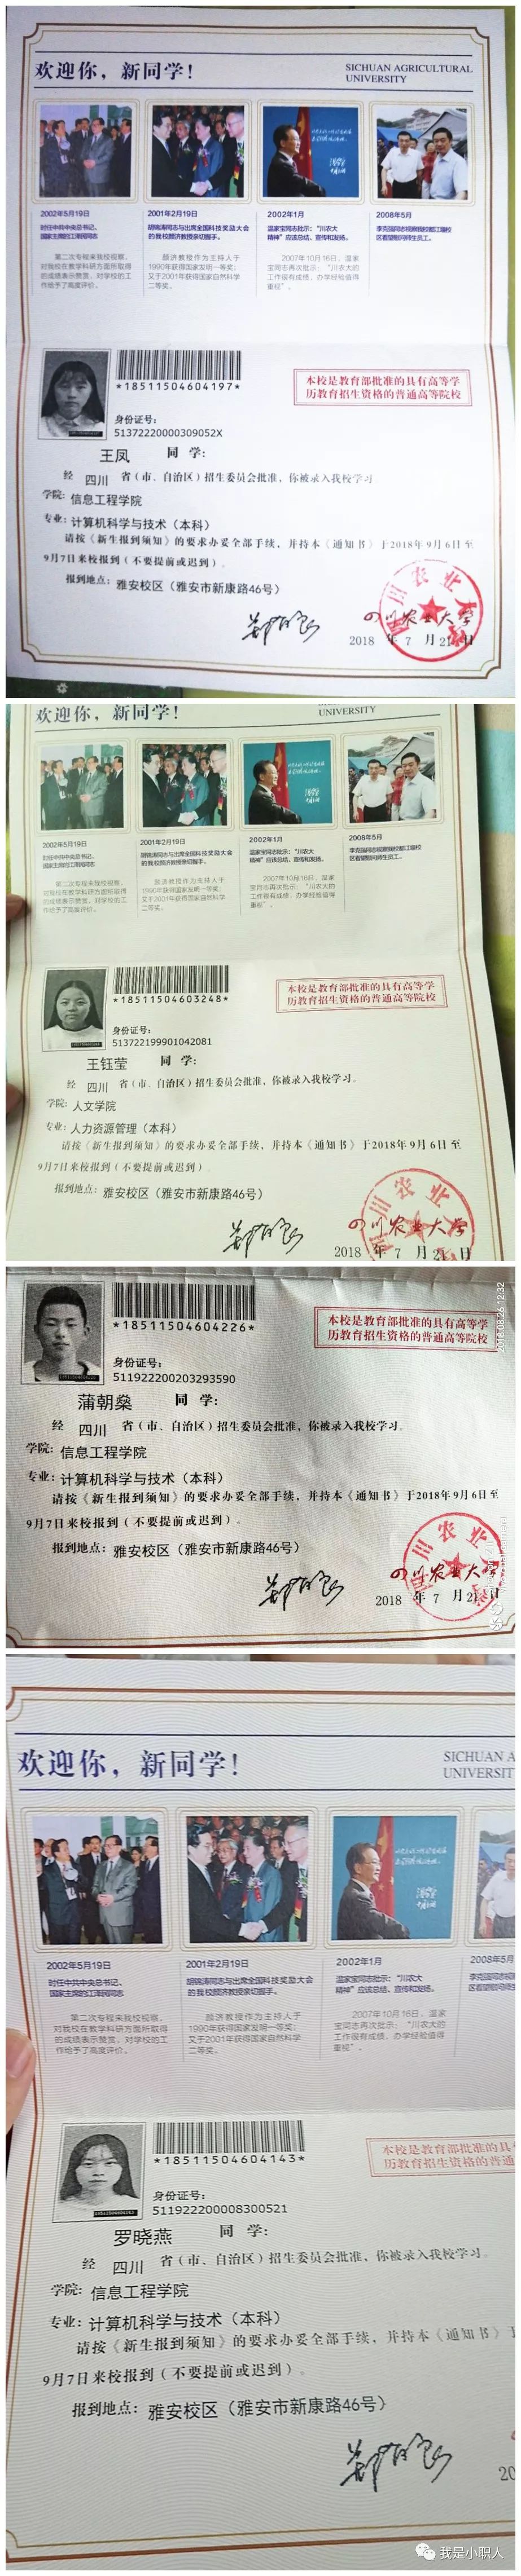 欢迎你，新同学！
SICHUAN AGRICULTURAL
UNIVERSITY
2002年5月19日
时任中共中央总书记、
国家主席的江泽民同志
第二次专程来我校视察，
对我校在教学科研方面所取得
的成绩表示赞赏，对学校的工
作给予了高度评价。
2001年2月19日
胡锦涛同志与出席全国科技奖励大会
的我校颜济教授亲切握手。
颜济教授作为主持人于
1990年获得国家发明一等奖；
又于2001年获得国家自然科学
二等奖。
2002年1月
温家宝同志批示：“川农大
精神”应该总结、宣传和发扬。
2007年10月16日，温家
宝同志再次批示：“川农大的
工作很有成绩，办学经验值得
重视”。
2008年5月
李克强同志视察我校都江堰校
区看望慰问师生员工。
*18511504604197*
本校是教育部批准的具有高等学
历教育招生资格的普通高等院校
身份证号：
51372220000309052X
王凤 同 学：
经 四川 省（市、自治区）招生委员会批准，你被录入我校学习
学院：信息工程学院
专业：计算机科学与技术（本科）
请按《新生报到须知》的要求办妥全部手续，并持本《通知书》于2018年9月6日至
9月7日来校报到（不要提前或迟到）。
报到地点：雅安校区（雅安市新康路46号）
四川农业大学
2018 年 7 月 21 日
欢迎你，新同学！
UNIVERSITY
2002年5月19日
时任中共中央总书记、
国家主席的江泽民同志
第二次专程来我校视察，
对我校在教学科研方面所取得
的成绩表示赞赏，对学校的工
作给予了高度评价。
2001年2月19日
胡锦涛同志与出席全国科技奖励大会
的我校颜济教授亲切握手。
颜济教授作为主持人于
1990年获得国家发明一等奖；
又于2001年获得国家自然科学
二等奖。
2002年1月
温家宝同志批示：“川农大
精神”应该总结、宣传和发扬。
2007年10月16日，温家
宝同志再次批示：“川农大的
工作很有成绩，办学经验值得
重视”。
2008年5月
李克强同志视察我校都江堰校
区看望慰问师生员工。
*18511504603248*
本校是教育部批准的具有高等学
历教育招生资格的普通高等院校
身份证号：
513722199901042081
王钰莹 同 学：
经 四川 省（市、自治区）招生委员会批准，你被录入我校学习。
学院：人文学院
专业：人力资源管理（本科）
请按《新生报到须知》的要求办妥全部手续，并持本《通知书》于2018年9月6日至
9月7日来校报到（不要提前或迟到）
报到地点：雅安校区（雅安市新康路46号）
四川农业大学
2018 年 7 月 21 日
*18511504604226*
本校是教育部批准的具有高等学
历教育招生资格的普通高等院校
2018.08.26 12:32
身份证号：
511922200203293590
蒲朝燊 同 学：
经 四川 省（市、自治区）招生委员会批准，你被录入我校学习。
学院：信息工程学院
专业：计算机科学与技术（本科）
请按《新生报到须知》的要求办妥全部手续，并持本《通知书》于2018年9月6日至
9月7日来校报到（不要提前或迟到）。
报到地点：雅安校区（雅安市新康路46号）
四川农业大学
2018 年 7 月 21 日
欢迎你，新同学！
SICHUAN A
UNIVERSIT
2002年5月19日
时任中共中央总书记、
国家主席的江泽民同志
第二次专程来我校视察，
对我校在教学科研方面所取得
的成绩表示赞赏，对学校的工
作给予了高度评价。
2001年2月19日
胡锦涛同志与出席全国科技奖励大会
的我校颜济教授亲切握手。
颜济教授作为主持人于
1990年获得国家发明一等奖；
又于2001年获得国家自然科学
二等奖。
2002年1月
温家宝同志批示：“川农大
精神”应该总结、宣传和发扬。
2007年10月16日，温家
宝同志再次批示：“川农大的
工作很有成绩，办学经验值得
重视”。
2008年5月
李克强同志视
区看望慰问师生
*18511504604143*
本校是教育部批准的具
历教育招生资格的普通
身份证号：
511922200008300521
罗晓燕 同 学：
经 四川 省（市、自治区）招生委员会批准，你被录入我校学习。
学院：信息工程学院
专业：计算机科学与技术（本科）
请按《新生报到须知》的要求办妥全部手续，并持本《通知书》于
9月7日来校报到（不要提前或迟到）。
报到地点：雅安校区（雅安市新康路46号）
20
我是小职人